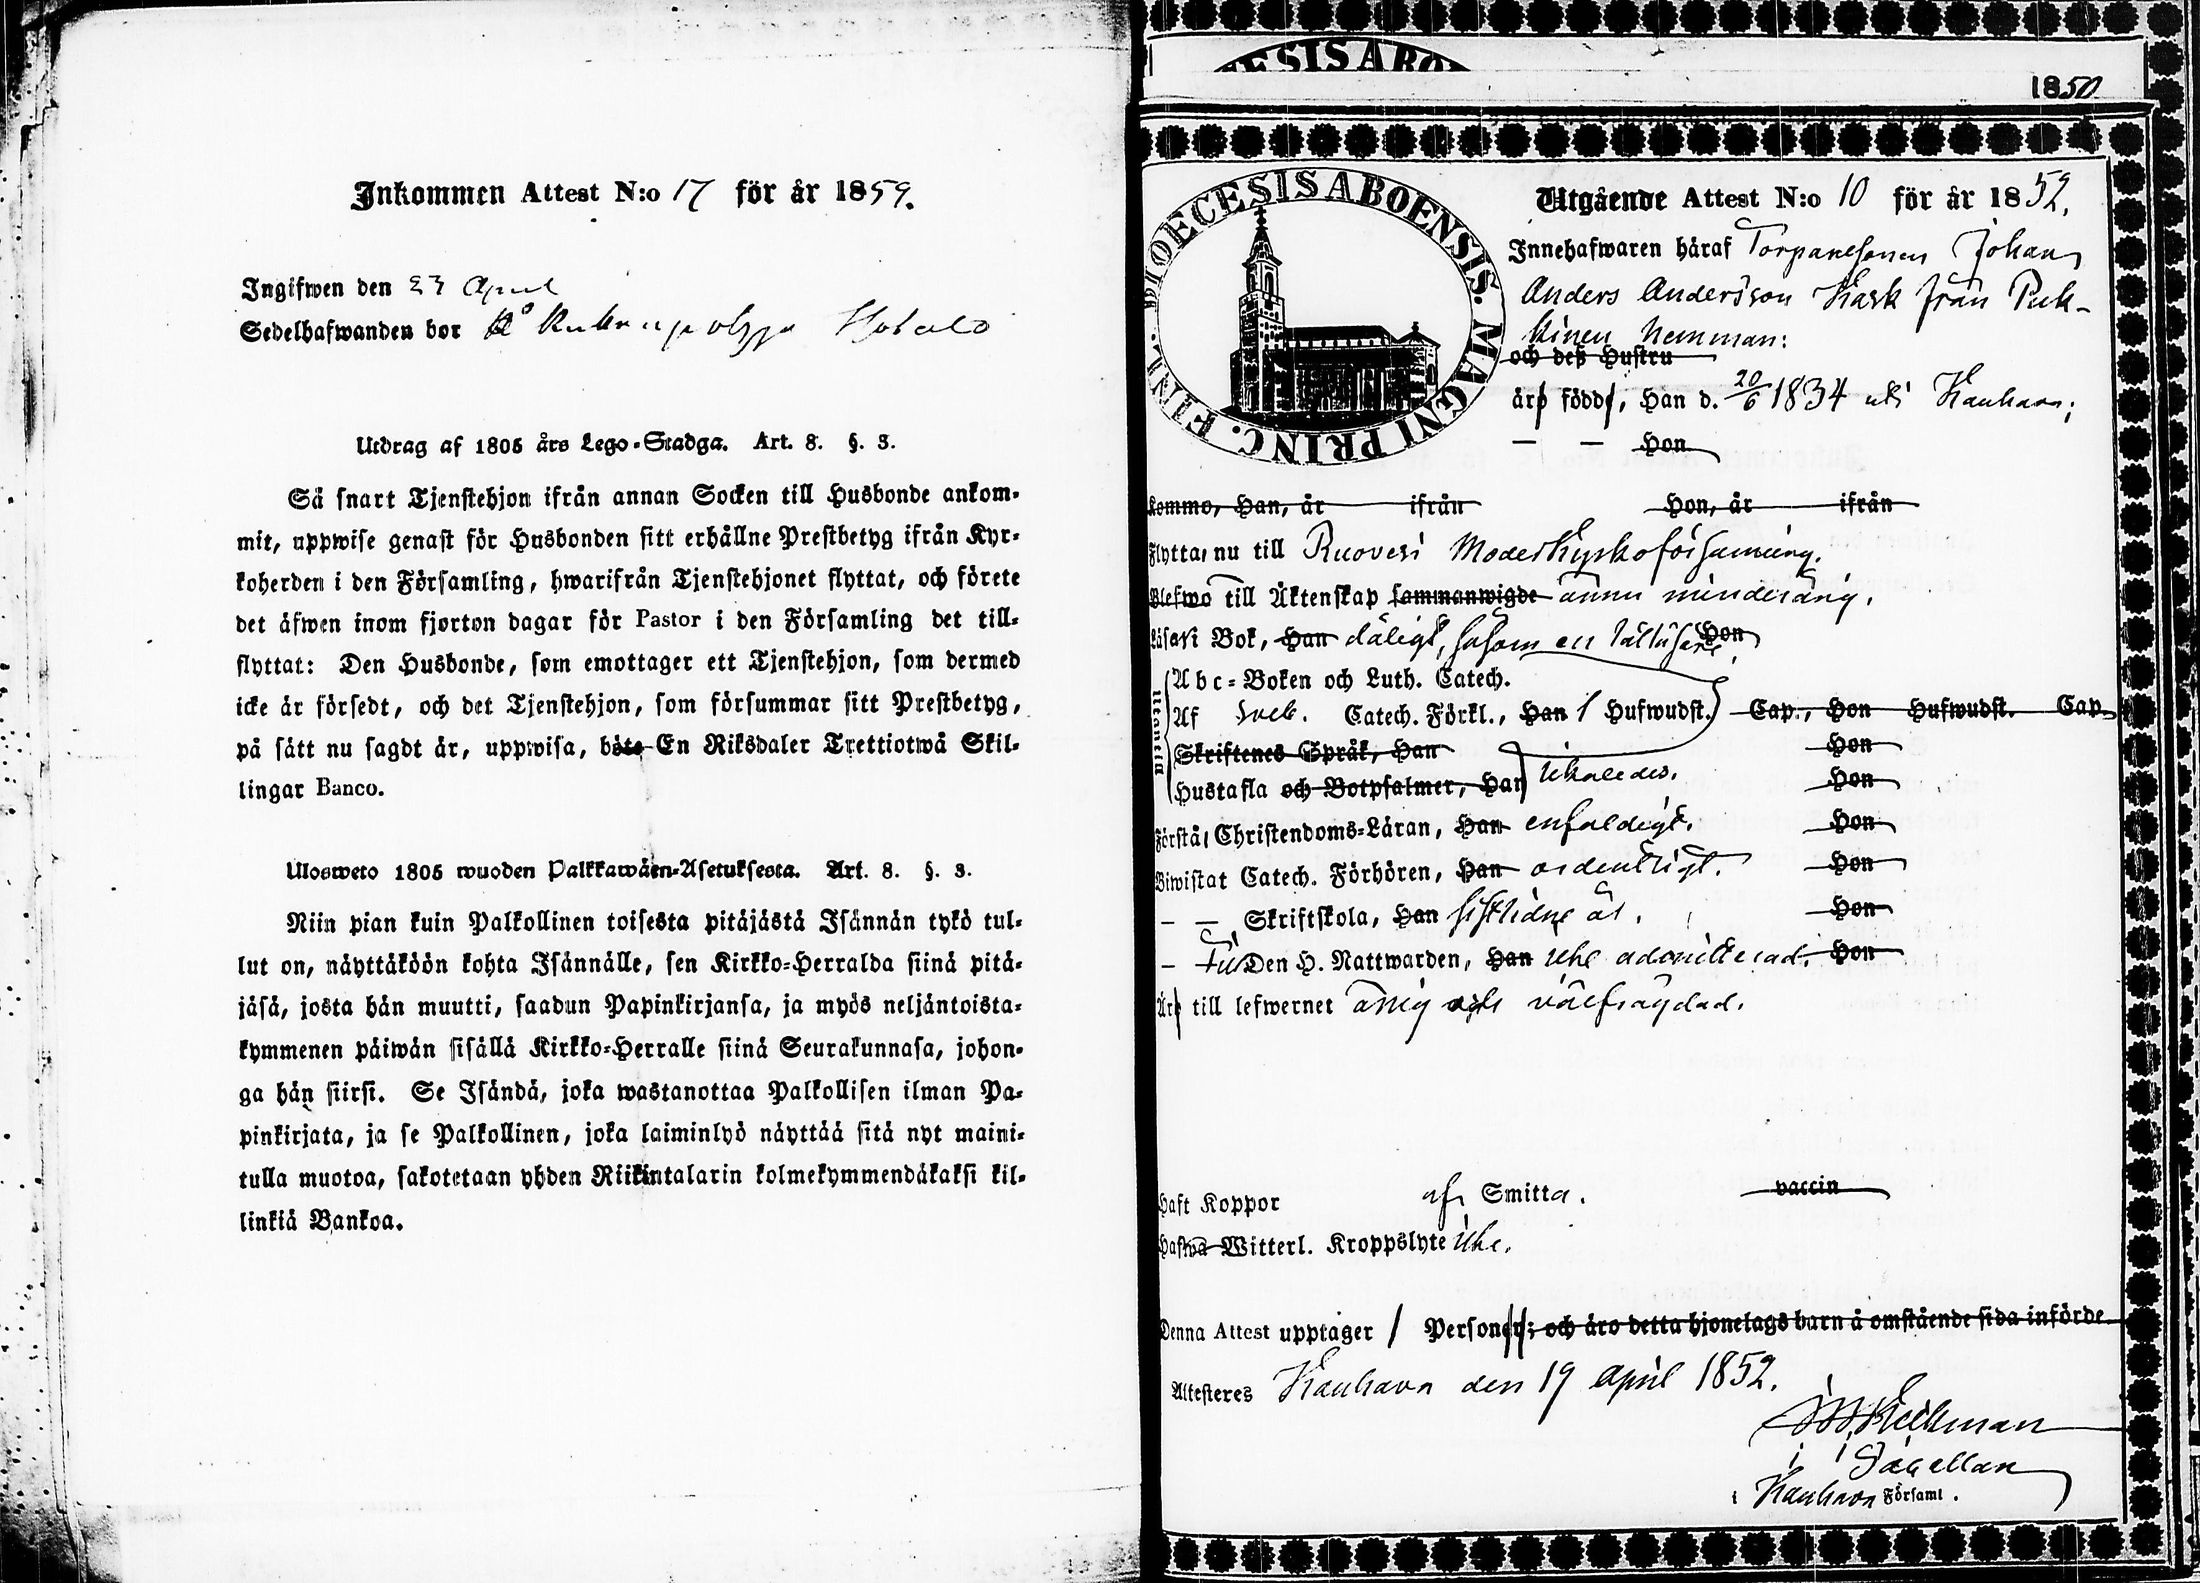 Inkommen Attest N:o 17 för år 1859.
Ingifwen den 23 April
Sedelhafwanden bor
Utdrag af 1805 års Lego-Stadga. Art. 8. §. 3.
Så snart Tjenstehjon ifrån annan Socken till Husbonde ankom-
mit, uppwise genast för Husbonden sitt erhållne Prestbetyg ifrån Kyr-
koherden i den Församling, hwarifrån Tjenstehjonet flyttat, och förete
det äfwen inom fjorton dagar för Pastor i den Församling det till-
flyttat: Den Husbonde, som emottager ett Tjenstehjon, som dermed
icke är försedt, och det Tjenstehjon, som försummar sitt Prestbetyg,
på sätt nu sagdt är, uppwisa, böte En Riksdaler Trettiotwå Skil-
lingar Banco.
Ulosweto 1805 wuoden Palkkawäen-Asetuksesta. Art. 8. §. 3.
Niin pian kuin Palkollinen toisesta pitäjästä Isännän tykö tul-
lut on, näyttäköön kohta Isännälle, sen Kirkko-Herralda siinä pitä-
jäsä, josta hän muutti, saadun Papinkirjansa, ja myös neljäntoista-
kymmenen päiwän sisällä Kirkko-Herralle siinä Seurakunnasa, johon-
ga hän siirsi. Se Isändä, joka wastanottaa Palkollisen ilman Pa-
pinkirjata, ja se Palkollinen, joka laiminlyö näyttää sitä nyt maini-
tulla muotoa, sakotetaan yhden Riikintalarin kolmekymmendäkaksi kil-
linkiä Bankoa.
1850
DIOECESIS ABOENSIS. MAGNI PRINC. FINL.
Utgående Attest N:o 10 för år 1852.
Innehafwaren häraf Torparesonen Johan
Anders Andersson Kask från Puk-
kinen hemman:
och deß Hustru
äro födde, Han d. 20/6 1834 uti Kauhava;
— — Hon
komme, Han, år ifrån Hon, år ifrån
Flyttar nu till Ruovesi Moderkyrkoförsamling.
Blefwo till Äktenskap sammanwigde ännu minderårig.
Läser i Bok, Han dåligt, såsom en Hon
Utantill
Abc-Boken och Luth. Catech.
Af Sveb. Catech. Förkl., Han 1 Hufwudst. Cap., Hon Hufwudst. Cap.
Skriftenes Språk, Han Hon
Hustafla och Botpsalmer, Han likaledes. Hon
Förstår Christendoms-Läran, Han enfaldigt. Hon
Biwistat Catech. Förhören, Han ordentligt. Hon
— — Skriftskola, Han sistlidne år. Hon
— Till Den H. Nattwarden, Han icke admitterad. Hon
Är till lefwernet ärlig och välfrägdad.
Haft Koppor af Smitta. vaccin
Hafwa Witterl. Kroppslyte icke.
Denna Attest upptager 1 Personer; och äro detta hjonelags barn å omstående sida införde.
Attesteres Kauhava den 19 April 1852.
Sacellan
i Kauhava Församl.